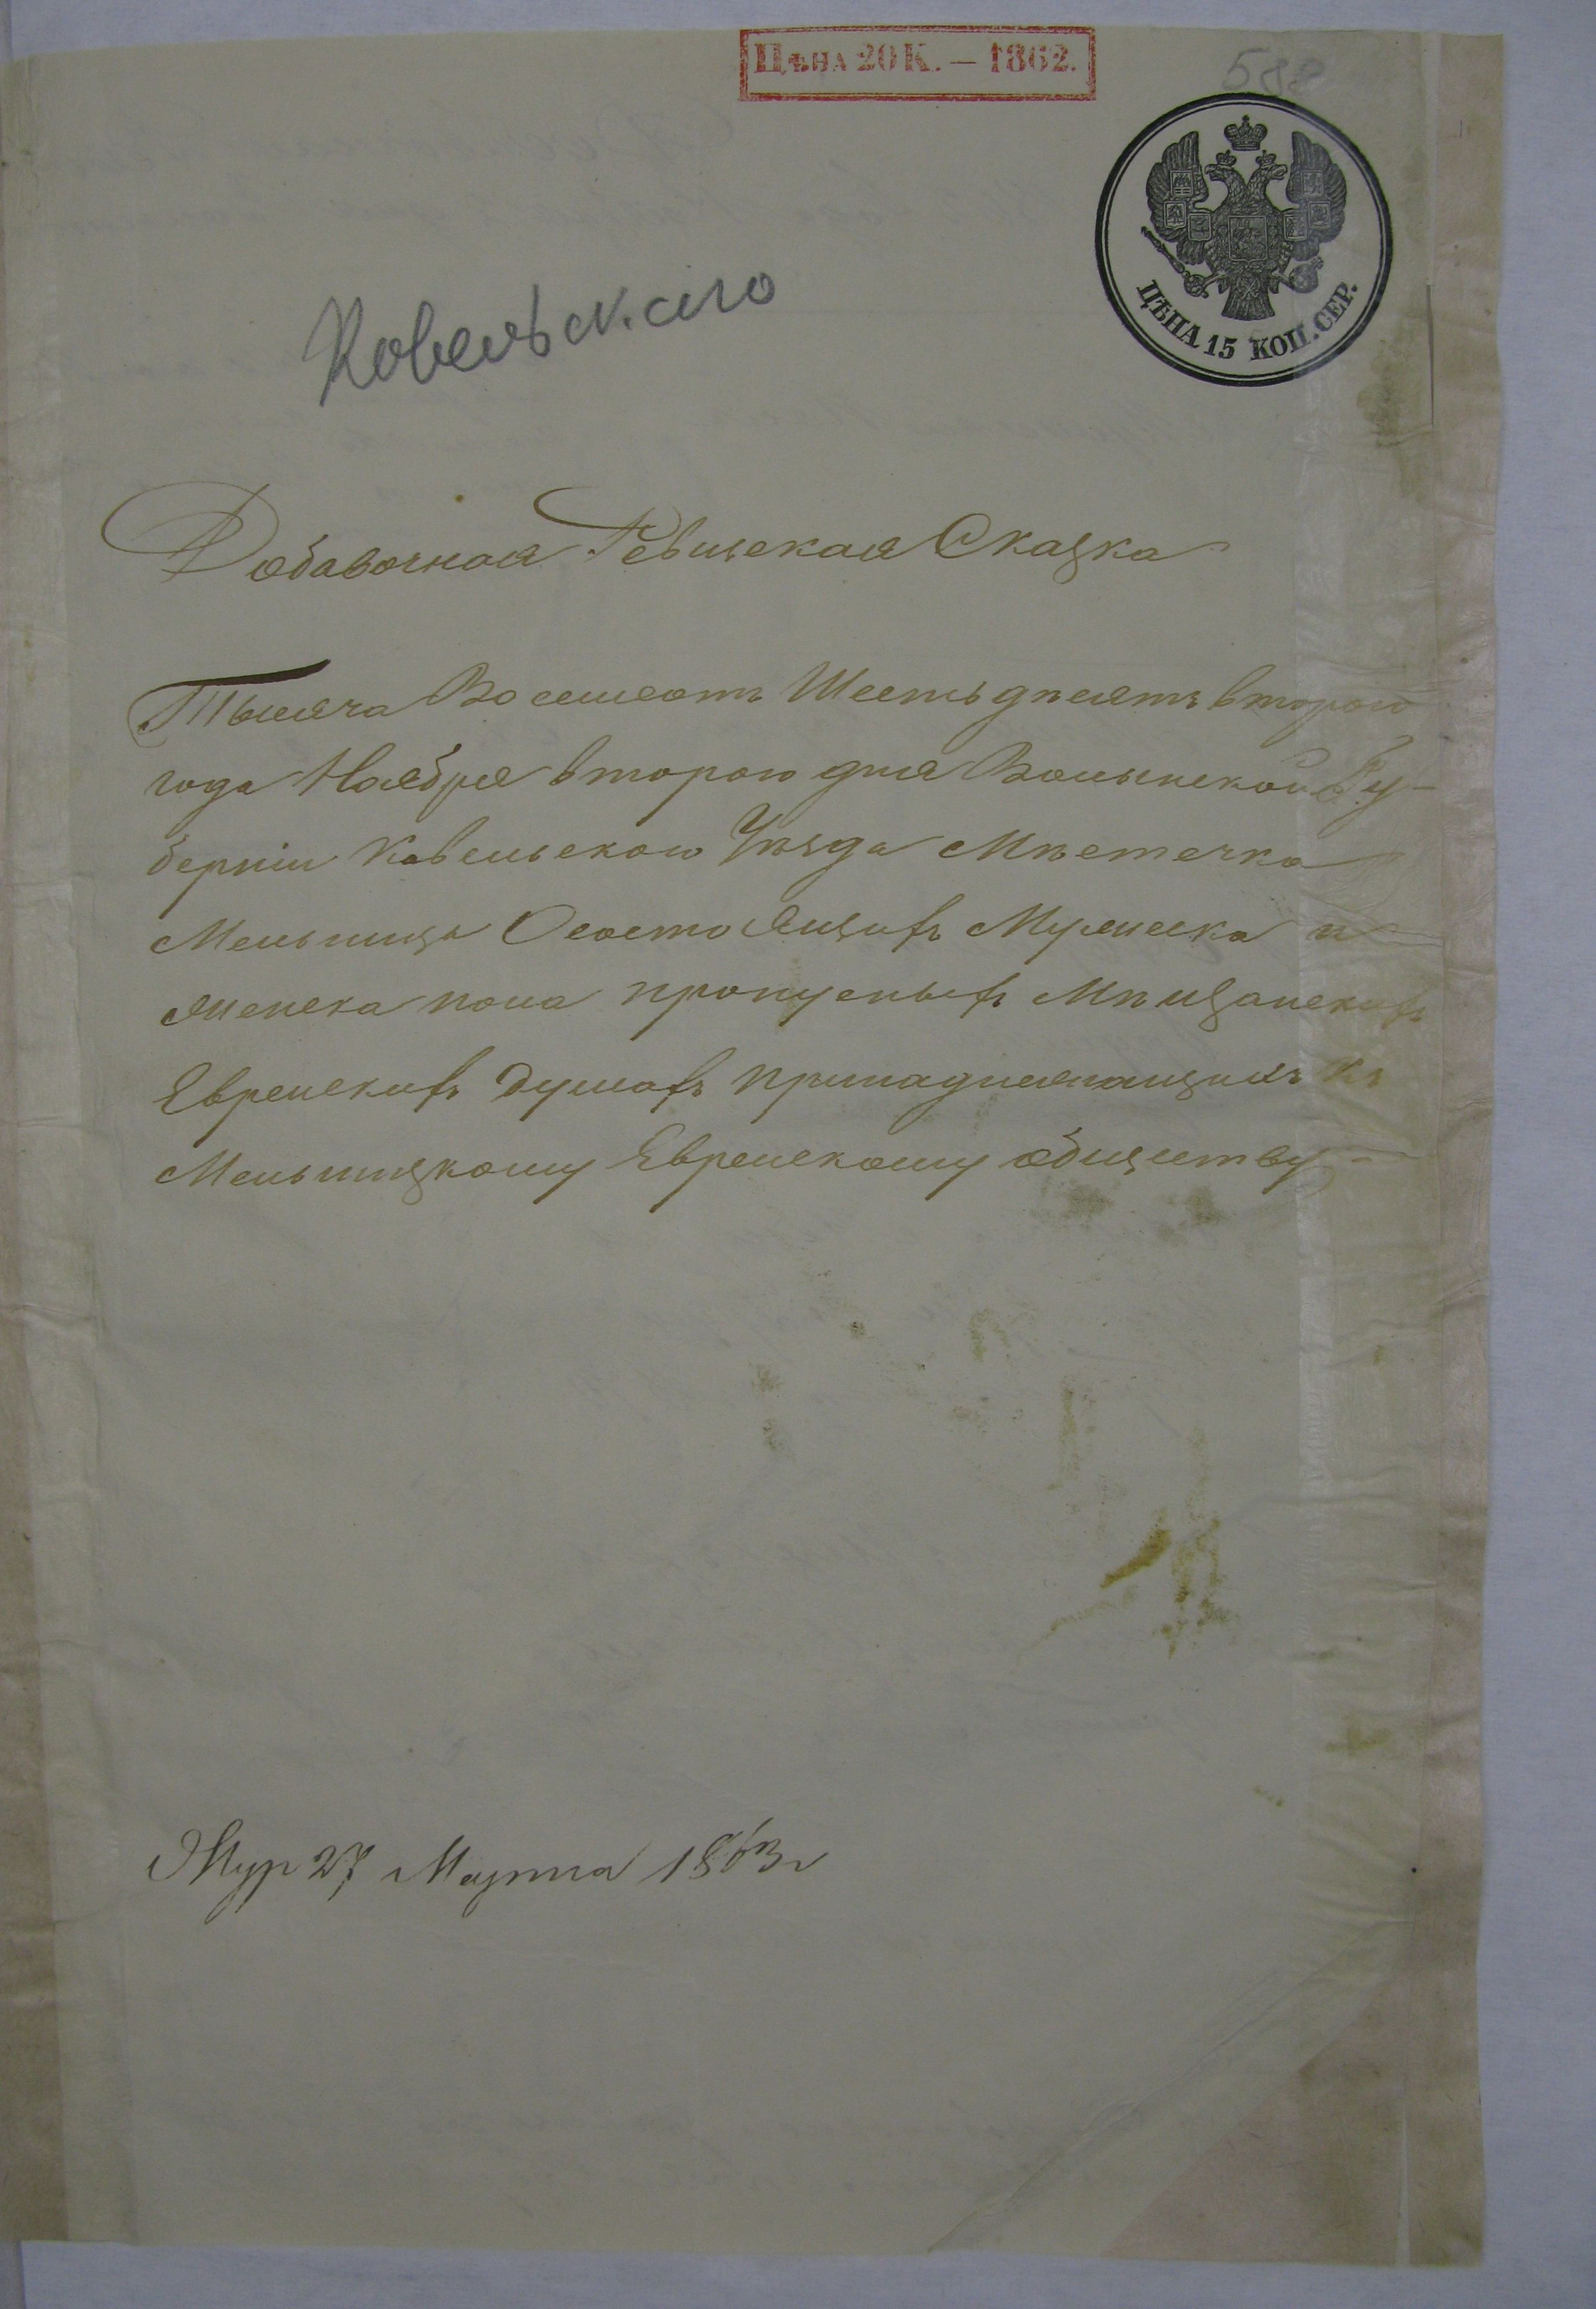 Цѣна 20 К. — 1862.
588
ЦѢНА 15 КОП. СЕР.
Ковельскаго
Добавочная Ревиская Сказка
Тысяча Восемсотъ Шестьдѣсятъ второго
года Ноября второго дня Волынской Гу-
берніи Ковельского Уѣзда Мѣстечка
Мельница О состоящихъ Мужеска и
Женска пола пропусныхъ Мѣщанскихъ
Еврейскихъ душахъ принадлежащихъ къ
Мельницкому Еврейскому обществу
Жур 27 Марта 1863 г